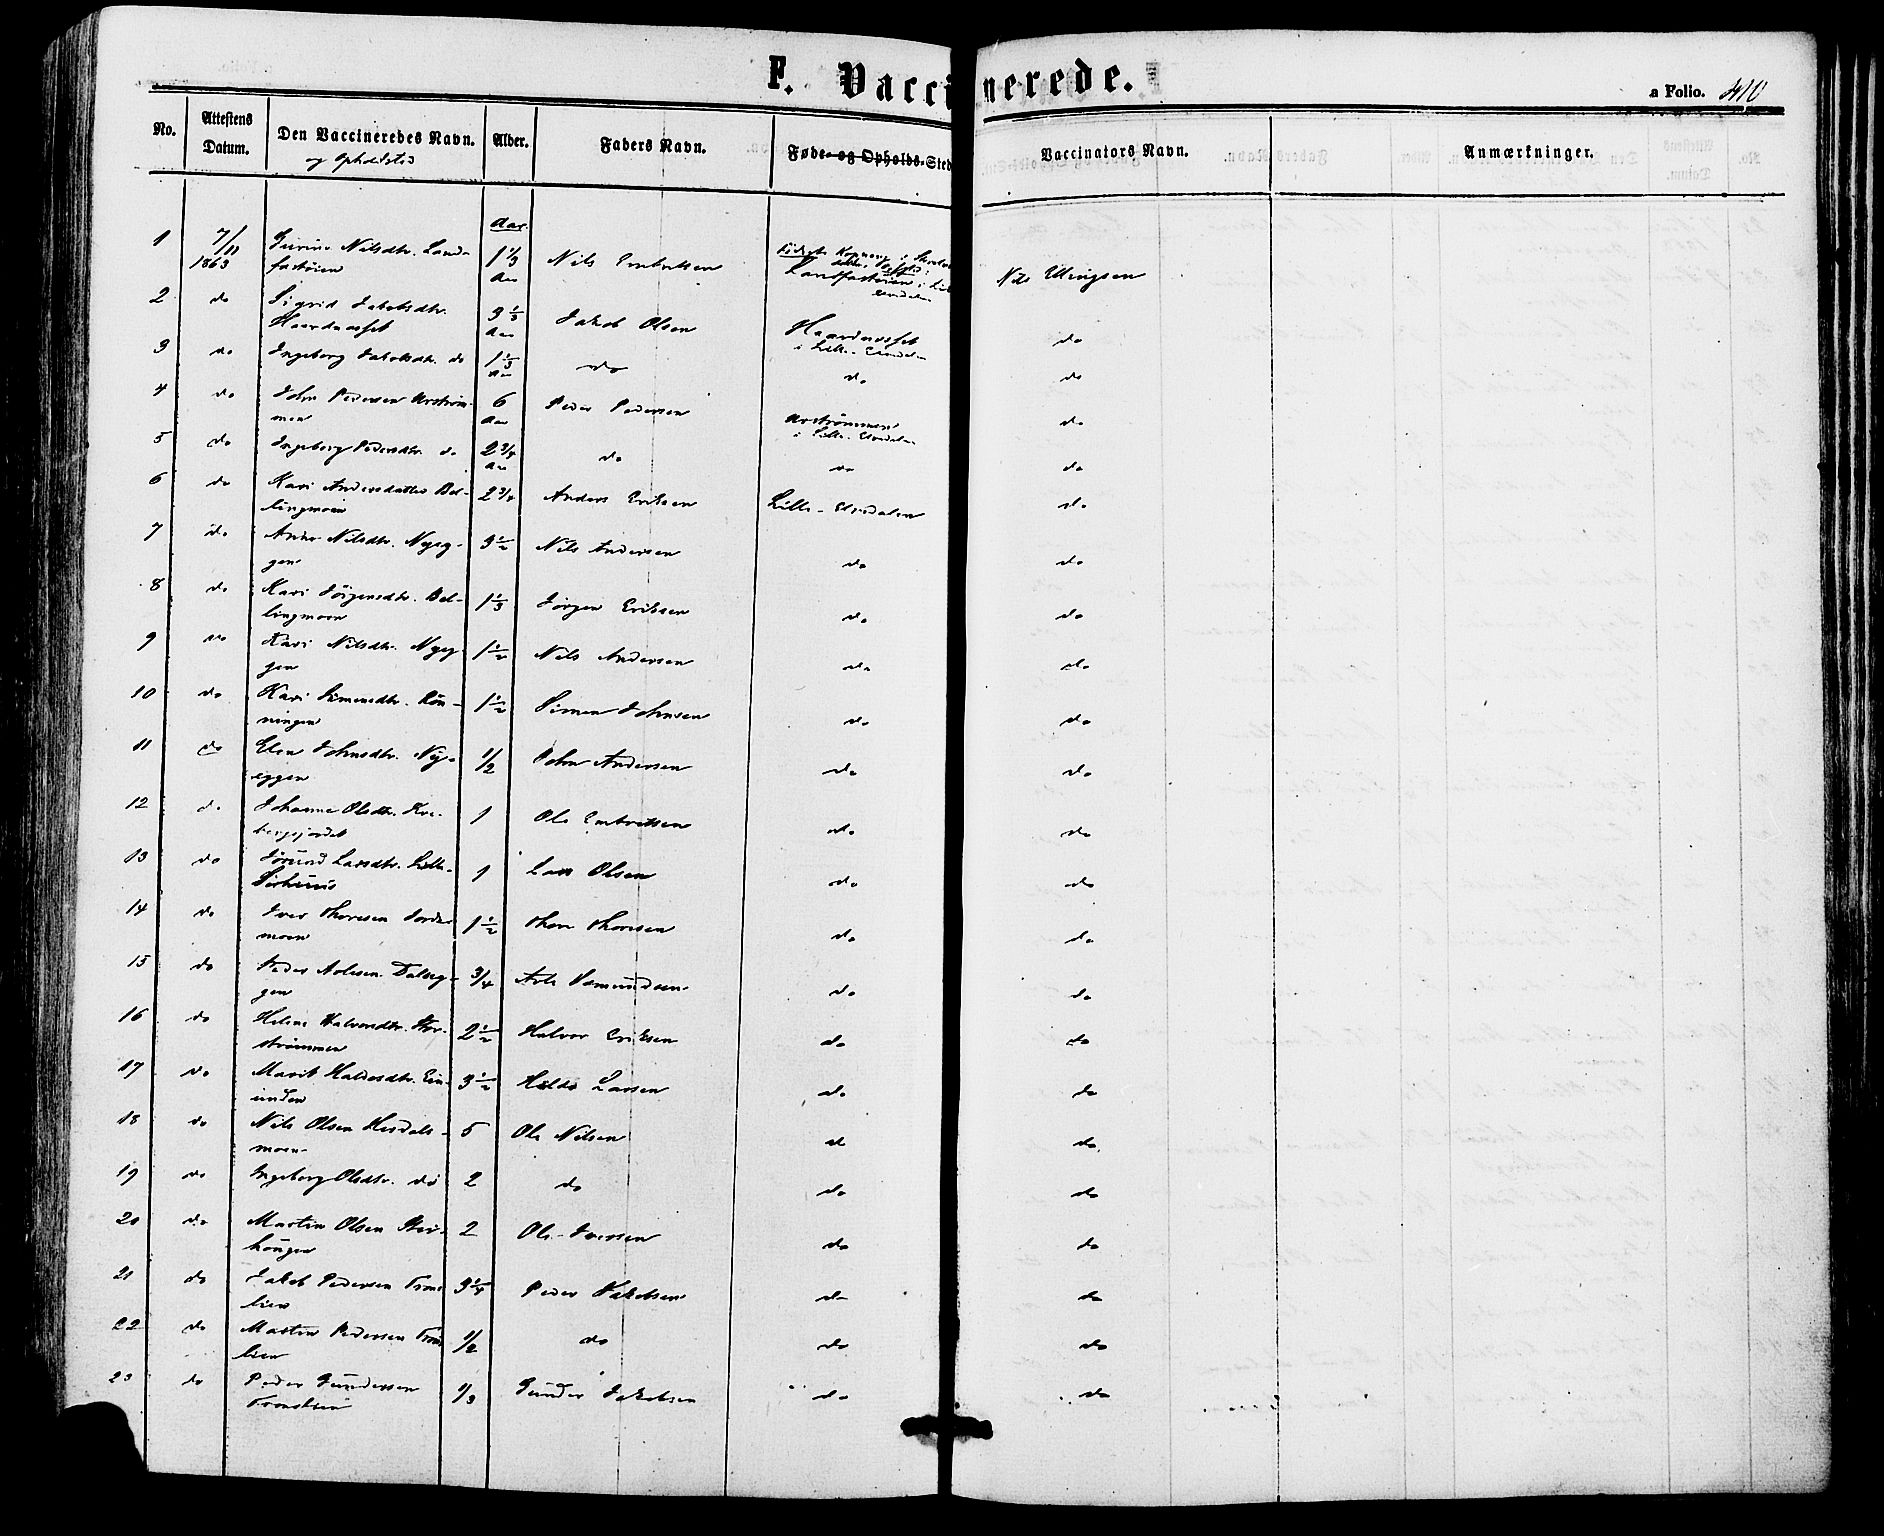 F. Vaccinerede.
a Folio. 410
No. Attestens Datum. Den Vaccineredes Navn. og Opholdsted Alder. Faders Navn. Føde- og Opholds-Sted Vaccinators Navn. Anmærkninger.
Aar
1 7/11 1863 Nilsdtr. Land- 1 1/3 Nils Embretsen Nils Ellingsen
fastøien Aar Landfastøien i Lille
Elvdalen
2 do Sigrid Jakobsdtr. 3 1/3 Jakob Olsen Haardnesset do
Haardnesset Aar i Lille-Elvdalen
3 do Ingeborg Jakobsdtr. do 1 1/3 do do do
Aar
4 do John Pedersen Aaström- 6 Peder Pedersen Aaströmmen do
men Aar i Lille-Elvdalen
5 do Ingeborg Pedersdtr. do 2 3/4 do do do
Aar
6 do Kari Andersdatter Bel- 2 3/4 Anders Eriksen Lille-Elvdalen do
lingmoen
7 do Anne Nilsdtr. Nyeg- 3 1/2 Nils Andersen do do
gen
8 do Kari Jörgensdtr. Bel- 1 1/3 Jörgen Eriksen do do
lingmoen
9 do Kari Nilsdtr. Nyeg- 1 1/2 Nils Andersen do do
gen
10 do Kari Simensdtr. Rön- 1 1/2 Simen Johnsen do do
ningen
11 do Elen Johnsdtr. Ny- 1/2 John Andersen do do
eggen
12 do Johanne Olsdtr. 1 Ole Embretsen do do
13 do Jörund Larsdtr. Lille- 1 Lars Olsen do do
Sörhuus
14 do Iver Thoresen Jordet- 1 1/2 Thore Thoresen do do
moen
15 do Peder Dalseg- 3/4 do do
gen
16 do Helene Halvorsdtr. Stor- 2 1/2 Halvor Eriksen do do
strömmen
17 do Marit Haldosdtr. Ein- 3 1/2 Haldo Larsen do do
unden
18 do Nils Olsen Husdals- 5 Ole Nilsen do do
moen
19 do Ingeborg Olsdtr. do 2 do do do
20 do Martin Olsen Stei- 2 Ole Iversen do do
haugen
21 do Jakob Pedersen Trons- 3 1/4 Peder Jakobsen do do
lien
22 do Martin Pedersen Trons- 1/2 do do do
lien
23 do Peder Gundersen 1/3 Gunder Jakobsen do do
Tronslien